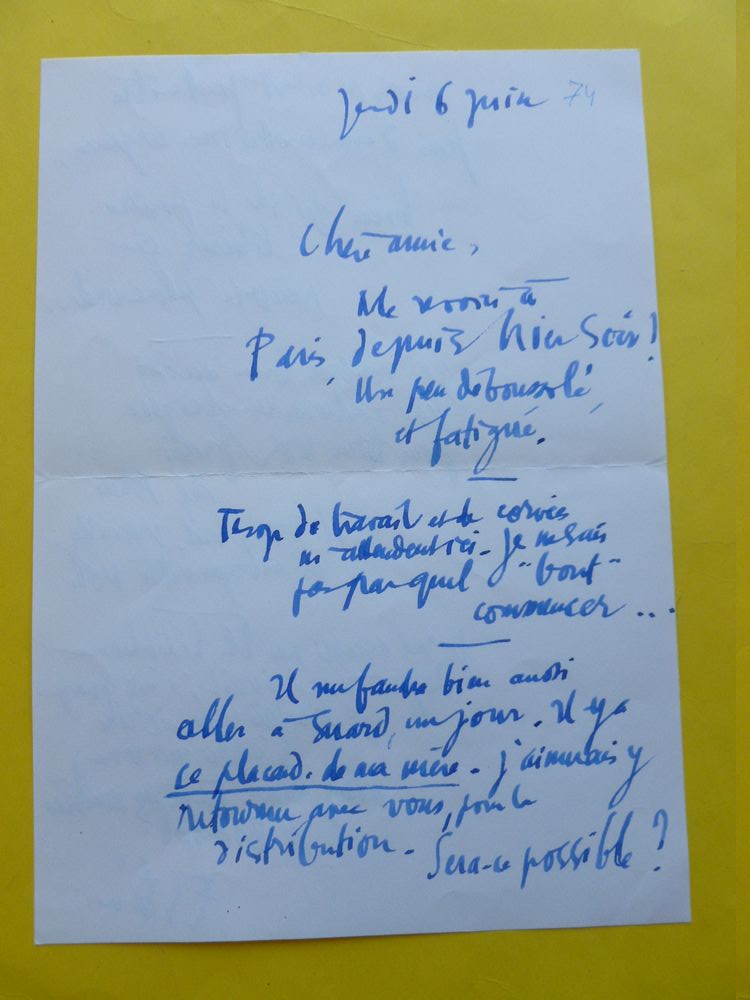 jeudi 6 juin 74
Chère amie,
Me voici à
Paris, depuis hier soir!
Un peu déboussolé,
et fatigué.
Trop de travail et de corvées
m'attendent ici. Je ne sais
pas par quel "bout"
commencer...
Il me faudra bien aussi
aller à un jour. Il y a
ce placard de ma mère. j'aimerais y
retourner avec vous, pour la
distribution. Sera-ce possible?